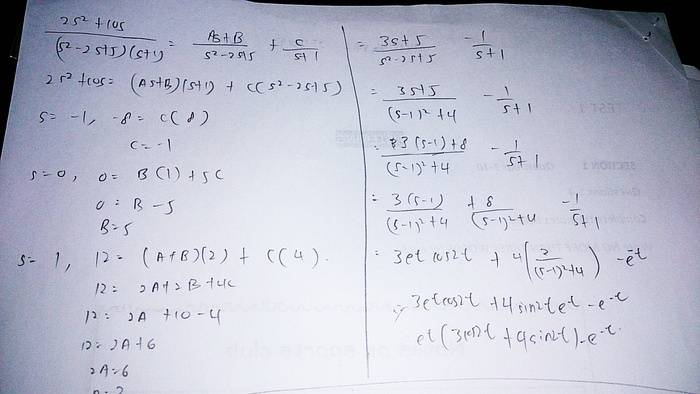 2s² + 10s / (s²-2s+5)(s+1) = As+B / s²-2s+5 + C / s+1
2s² + 10s = (As+B)(s+1) + C(s²-2s+5)
s= -1, -8 = C(8)
C = -1
s=0, 0= B(1)+5C
0 = B - 5
B= 5
s= 1, 12 = (A+B)(2) + C(4).
12 = 2A+2B+4C
12 = 2A +10-4
12 = 2A+6
2A=6
= 3s+5 / s²-2s+5 - 1 / s+1
= 3s+5 / (s-1)²+4 - 1 / s+1
= 3(s-1)+8 / (s-1)²+4 - 1 / s+1
= 3(s-1) / (s-1)²+4 + 8 / (s-1)²+4 - 1 / s+1
= 3e^t cos2t + 4(2 / (s-1)²+4) - e^-t
= 3e^t cos2t + 4sin2t e^t - e^-t
e^t(3cos2t + 4sin2t) - e^-t.